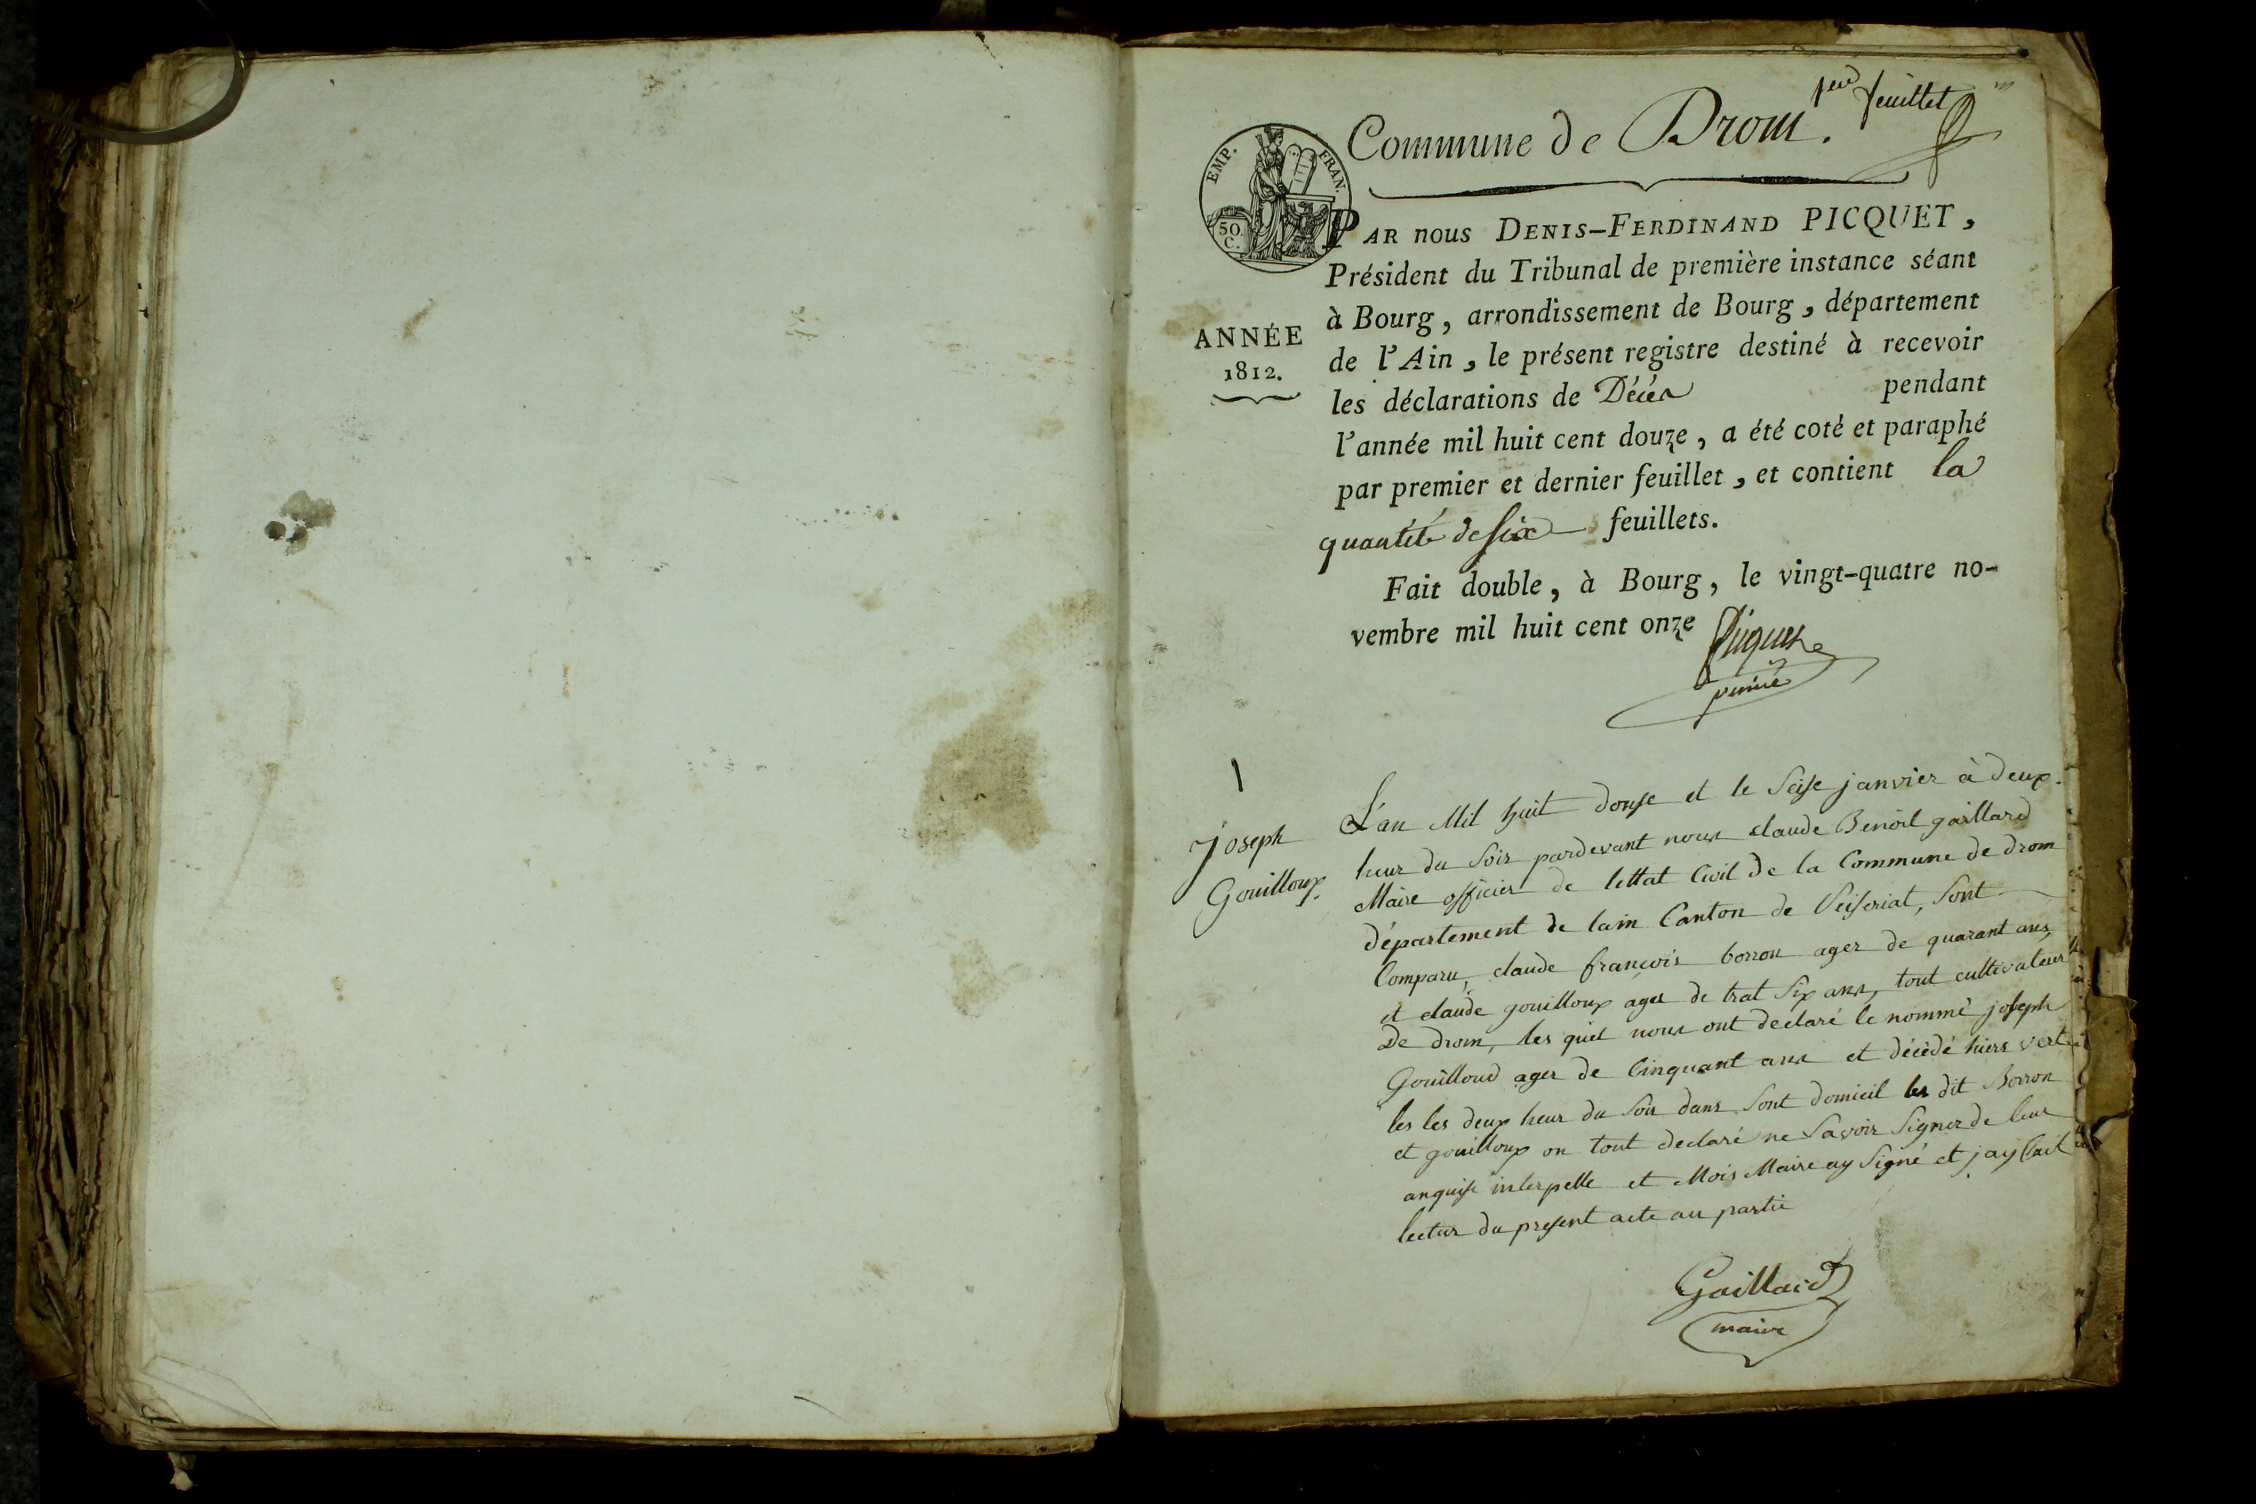 1er feuillet
Commune de Drom.
EMP. FRAN.
50.
C.
PAR nous DENIS-FERDINAND PICQUET,
Président du Tribunal de première instance séant
à Bourg, arrondissement de Bourg, département
ANNÉE
1812.
de l'Ain, le présent registre destiné à recevoir
les déclarations de Décés pendant
l'année mil huit cent douze, a été coté et paraphé
par premier et dernier feuillet, et contient la
quantité de six feuillets.
Fait double, à Bourg, le vingt-quatre no-
vembre mil huit cent onze
Picquet
1
Joseph
Gouilloux.
L'an Mil huit douse et le Seise janvier à deux.
heur du Soir pardevant nous claude Benoit gaillard
Maire officier de lettat Civil de la Commune de drom
département de lain Canton de Ceiseriat, Sont
Comparu, claude françois borron ager de quarant ans,
et claude gouilloux ager de trat Six ans, tout cultivateur
De drom, les quel nous ont declaré le nommé joseph
Gouilloud ager de Cinquant ans et décèdé hiers vert
les les deux heur du Soir dans Sont domicil les dit Borron
et gouilloux on tout declaré ne Savoir Signer de leur
anquise interpelle et Mois Maire ay Signé et jay fait
lectur du present acte au partie
Gaillard
maire